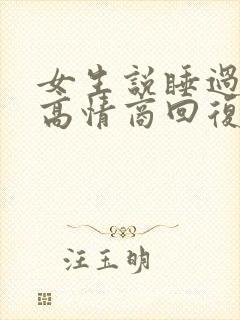 女生説睡過
高情商回復
汪玉明